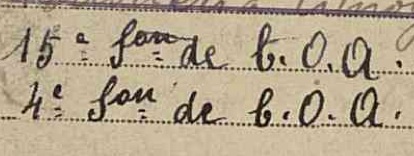 15e Son de C.O.A.
4e Son de C.O.A.